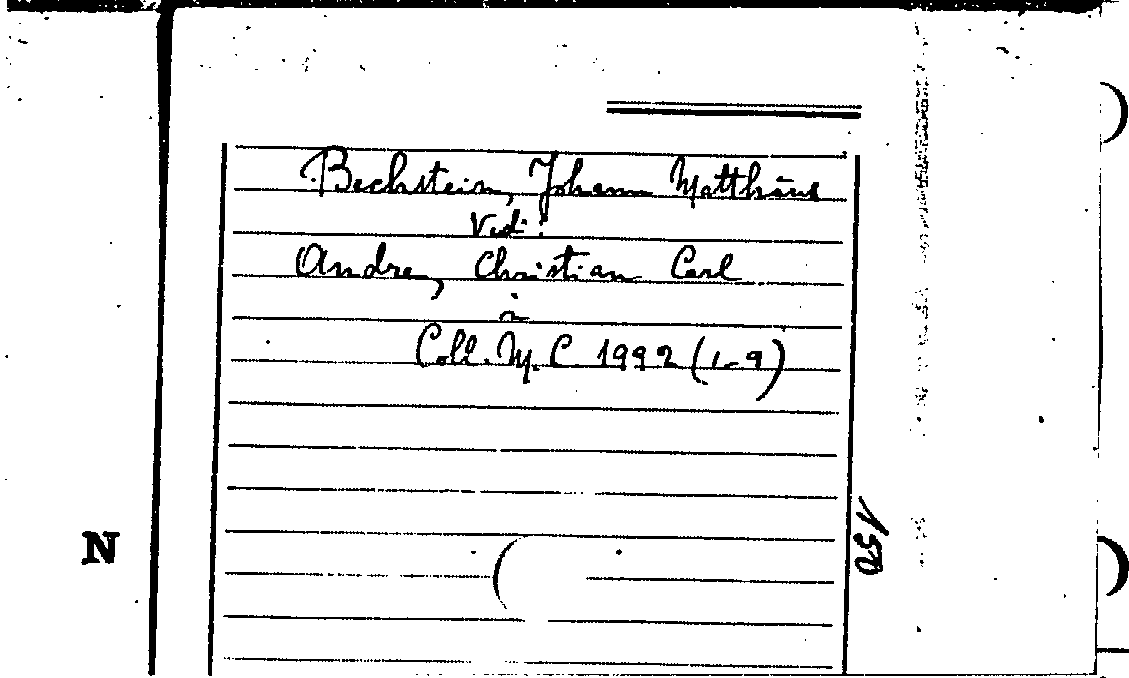 Bechstein, Johann Matthäus
Vedi:
Andre, Christian Carl
a
Coll. M. C 1992 (1-9)
150
N